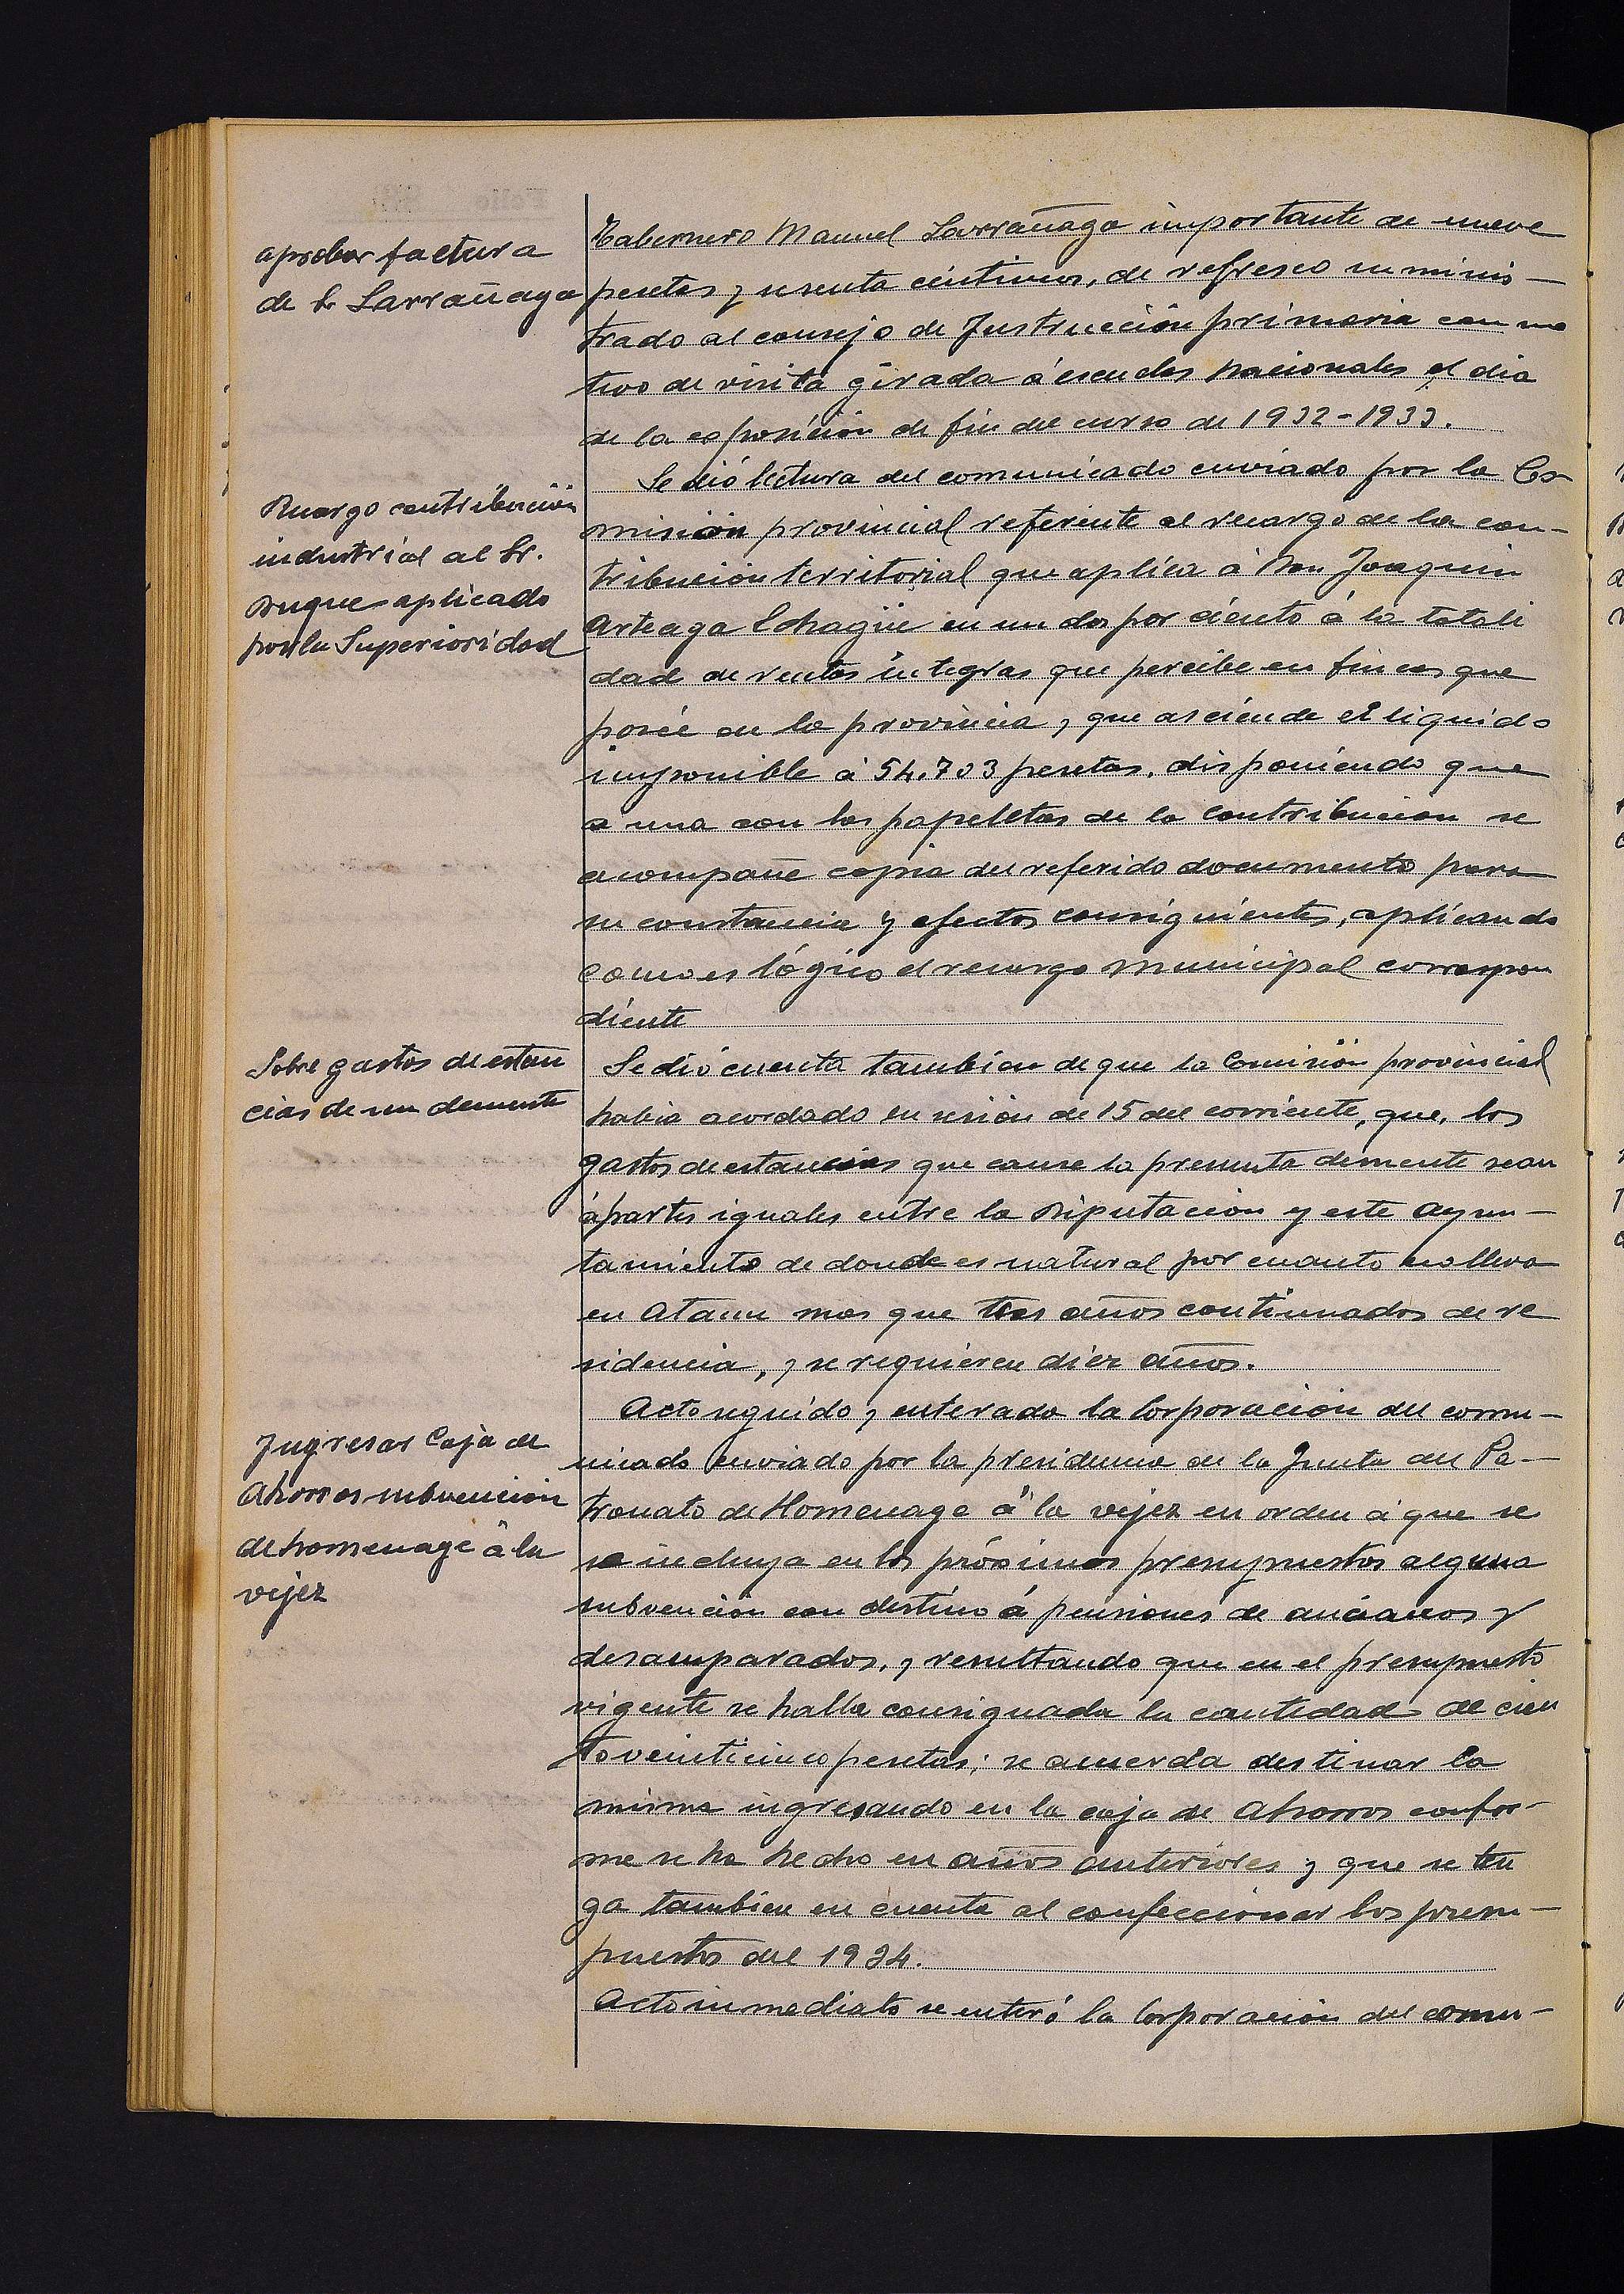 aprobar factura
de Sr Larrañaga
Tabernero Manuel Larrañaga importante de nueve
pesetas y sesenta céntimos, de refresco suminis-
trado al consejo de Instrucción primaria con mo
tivo de visita girada á escuelas nacionales el dia
de la exposición de fin del curso de 1932-1933.
Recargo contribución
industrial al Sr.
Duque aplicado
por la Superioridad
Se dió lectura del comunicado enviado por la Co-
misión provincial referente al recargo de la con-
tribución territorial que aplica á Don Joaquin
Arteaga Echagüe en un dos por ciento á la totali
dad de rentas integras que percibe en fincas que
posée en la provincia, y que asciende el liquido
imponible á 54.703 pesetas, disponiendo que
a una con las papeletas de la contribución se
acompañe copia del referido documento para
su constancia y efectos consiguientes, aplicando
como es lógico el recargo municipal correspon
diente
Sobre gastos de estan
cias de un demente
Se dió cuenta tambien de que la Comisión provincial
habia acordado en sesión de 15 del corriente, que, los
gastos de estancias que cause la presunta demente sean
á partes iguales entre la Diputación y este Ayun-
tamiento de donde es natural por cuanto no lleva
en Ataun mas que tres años continuados de re
sidencia, y se requieren diez años.
Ingresar Caja de
Ahorros subvencion
de homenage á la
vejez
Acto seguido y enterada la Corporación del comu-
nicado enviado por la presidencia de la Junta del Pa-
tronato de Homenage á la vejez en orden á que se
se incluya en los próximos presupuestos alguna
subvención con destino á pensiones de ancianos y
desamparados, y resultando que en el presupuesto
vigente se halla consignada la cantidad de cien
to veinticinco pesetas; se acuerda destinar la
misma ingresando en la caja de Ahorros confor-
me se ha hecho en años anteriores y que se ten
ga tambien en cuenta al confeccionar los presu-
puestos del 1934.
Acto inmediato se enteró la Corporación del comu-